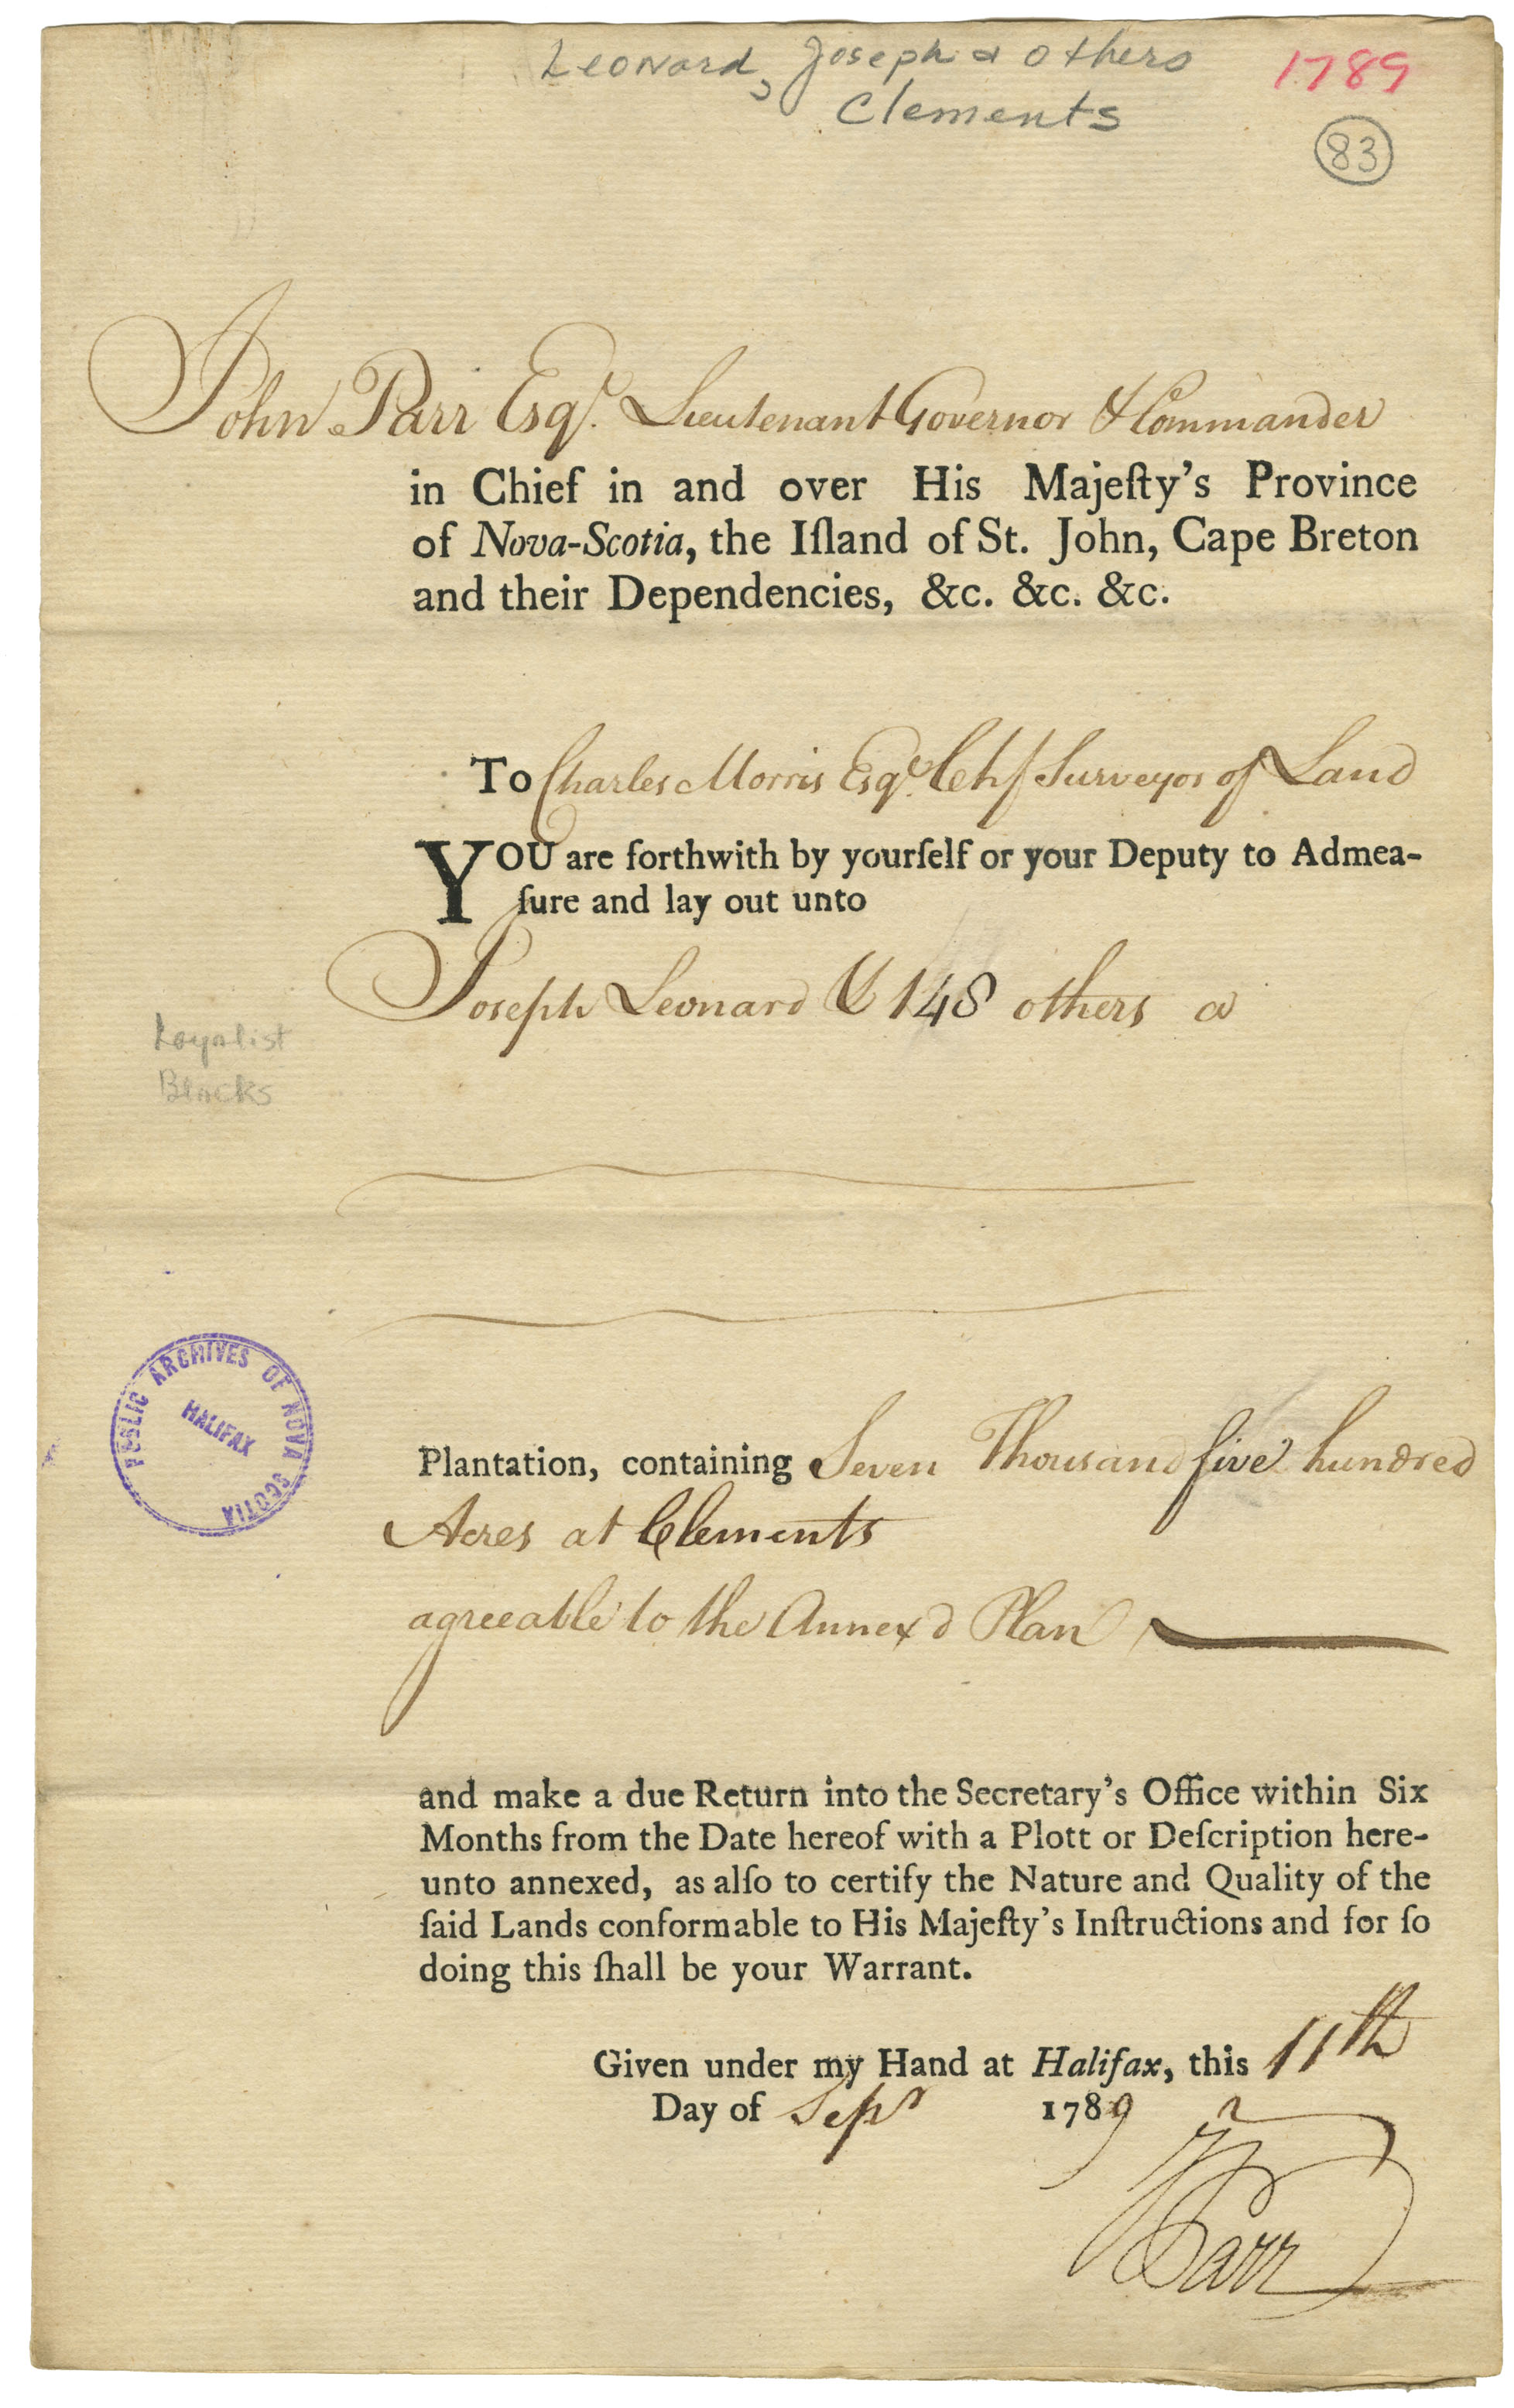 Leonard, Joseph & others
1789
Clements
83
John Parr Esqr. Lieutenant Governor & Commander
in Chief in and over His Majeſty's Province
of Nova-Scotia, the Iſland of St. John, Cape Breton
and their Dependencies, &c. &c. &c.
To Charles Morris Esqr. Chf Surveyor of Land
YOU are forthwith by yourſelf or your Deputy to Admea-
ſure and lay out unto
Joseph Leonard & 148 others a
Loyalist
Blacks
PUBLIC ARCHIVES OF NOVA SCOTIA
HALIFAX
Plantation, containing Seven Thousand five hundred
Acres at Clements
agreeable to the Annex'd Plan
and make a due Return into the Secretary's Office within Six
Months from the Date hereof with a Plott or Deſcription here-
unto annexed, as alſo to certify the Nature and Quality of the
ſaid Lands conformable to His Majeſty's Inſtructions and for ſo
doing this ſhall be your Warrant.
Given under my Hand at Halifax, this 11th
Day of Sepr 1789
J Parr